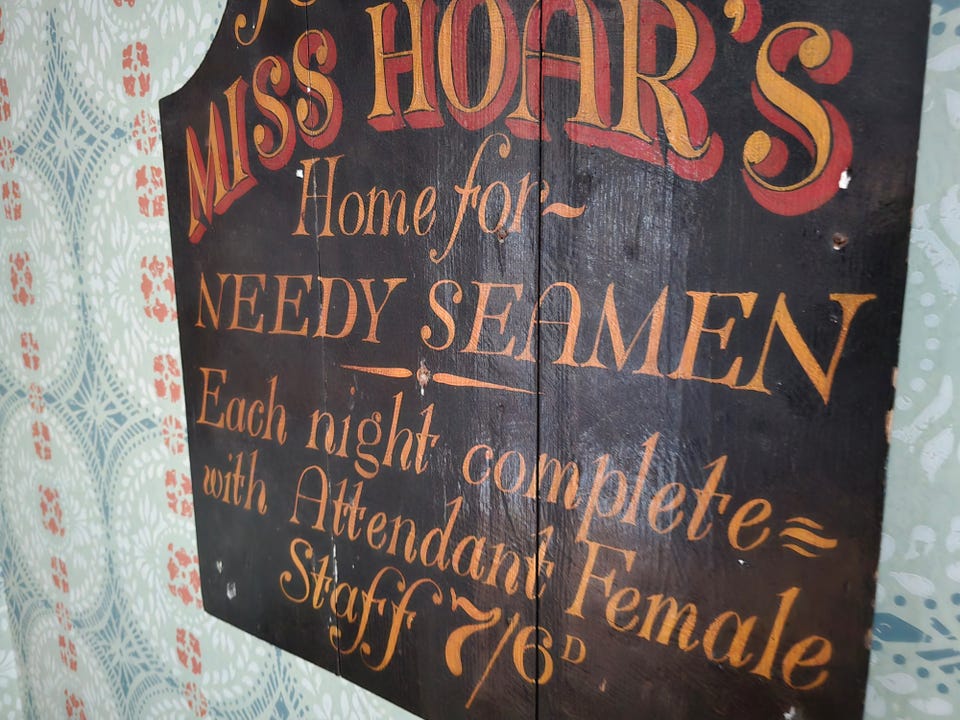 MISS HOAR'S
Home for~
NEEDY SEAMEN
Each night complete
with Attendant Female
Staff 7/6D